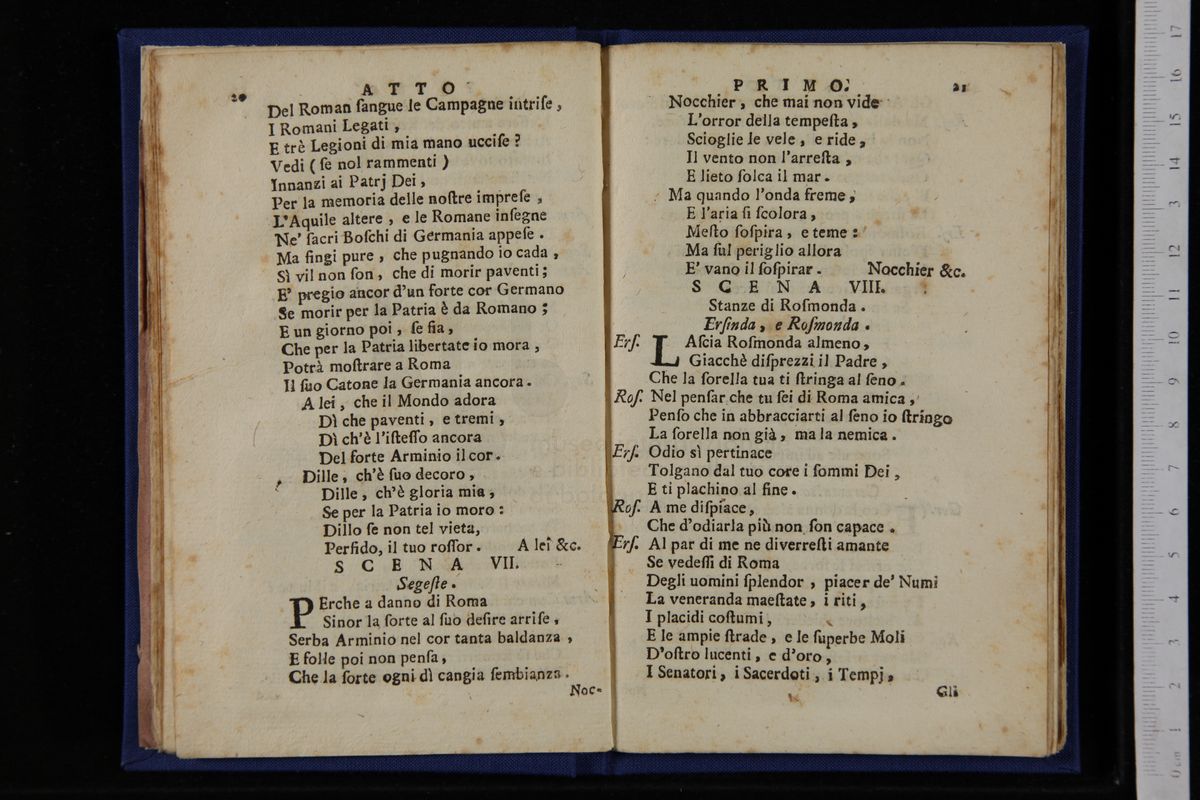 20 ATTO
Del Roman ſangue le Campagne intriſe,
I Romani Legati,
E trè Legioni di mia mano ucciſe?
Vedi (ſe nol rammenti)
Innanzi ai Patrj Dei,
Per la memoria delle noſtre impreſe,
L'Aquile altere, e le Romane inſegne
Ne' ſacri Boſchi di Germania appeſe.
Ma fingi pure, che pugnando io cada,
Sì vil non ſon, che di morir paventi;
E' pregio ancor d'un forte cor Germano
Se morir per la Patria è da Romano;
E un giorno poi, ſe fia,
Che per la Patria libertate io mora,
Potrà moſtrare a Roma
Il ſuo Catone la Germania ancora.
A lei, che il Mondo adora
Dì che paventi, e tremi,
Dì ch'è l'iſteſſo ancora
Del forte Arminio il cor.
Dille, ch'è ſuo decoro,
Dille, ch'è gloria mia,
Se per la Patria io moro:
Dillo ſe non tel vieta,
Perfido, il tuo roſſor. A lei &c.
SCENA VII.
Segeſte.
PErche a danno di Roma
Sinor la ſorte al ſuo deſire arriſe,
Serba Arminio nel cor tanta baldanza,
E folle poi non penſa,
Che la ſorte ogni dì cangia ſembianza.
Noc-
PRIMO. 21
Nocchier, che mai non vide
L'orror della tempeſta,
Scioglie le vele, e ride,
Il vento non l'arreſta,
E lieto ſolca il mar.
Ma quando l'onda freme,
E l'aria ſi ſcolora,
Meſto ſoſpira, e teme:
Ma ſul periglio allora
E' vano il ſoſpirar. Nocchier &c.
SCENA VIII.
Stanze di Roſmonda.
Erſinda, e Roſmonda.
Erſ. LAſcia Roſmonda almeno,
Giacchè diſprezzi il Padre,
Che la ſorella tua ti ſtringa al ſeno.
Roſ. Nel penſar che tu ſei di Roma amica,
Penſo che in abbracciarti al ſeno io ſtringo
La ſorella non già, ma la nemica.
Erſ. Odio sì pertinace
Tolgano dal tuo core i ſommi Dei,
E ti plachino al fine.
Roſ. A me diſpiace,
Che d'odiarla più non ſon capace.
Erſ. Al par di me ne diverreſti amante
Se vedeſſi di Roma
Degli uomini ſplendor, piacer de' Numi
La veneranda maeſtate, i riti,
I placidi coſtumi,
E le ampie ſtrade, e le ſuperbe Moli
D'oſtro lucenti, e d'oro,
I Senatori, i Sacerdoti, i Tempj,
Gli
0 cm 1 2 3 4 5 6 7 8 9 10 11 12 13 14 15 16 17